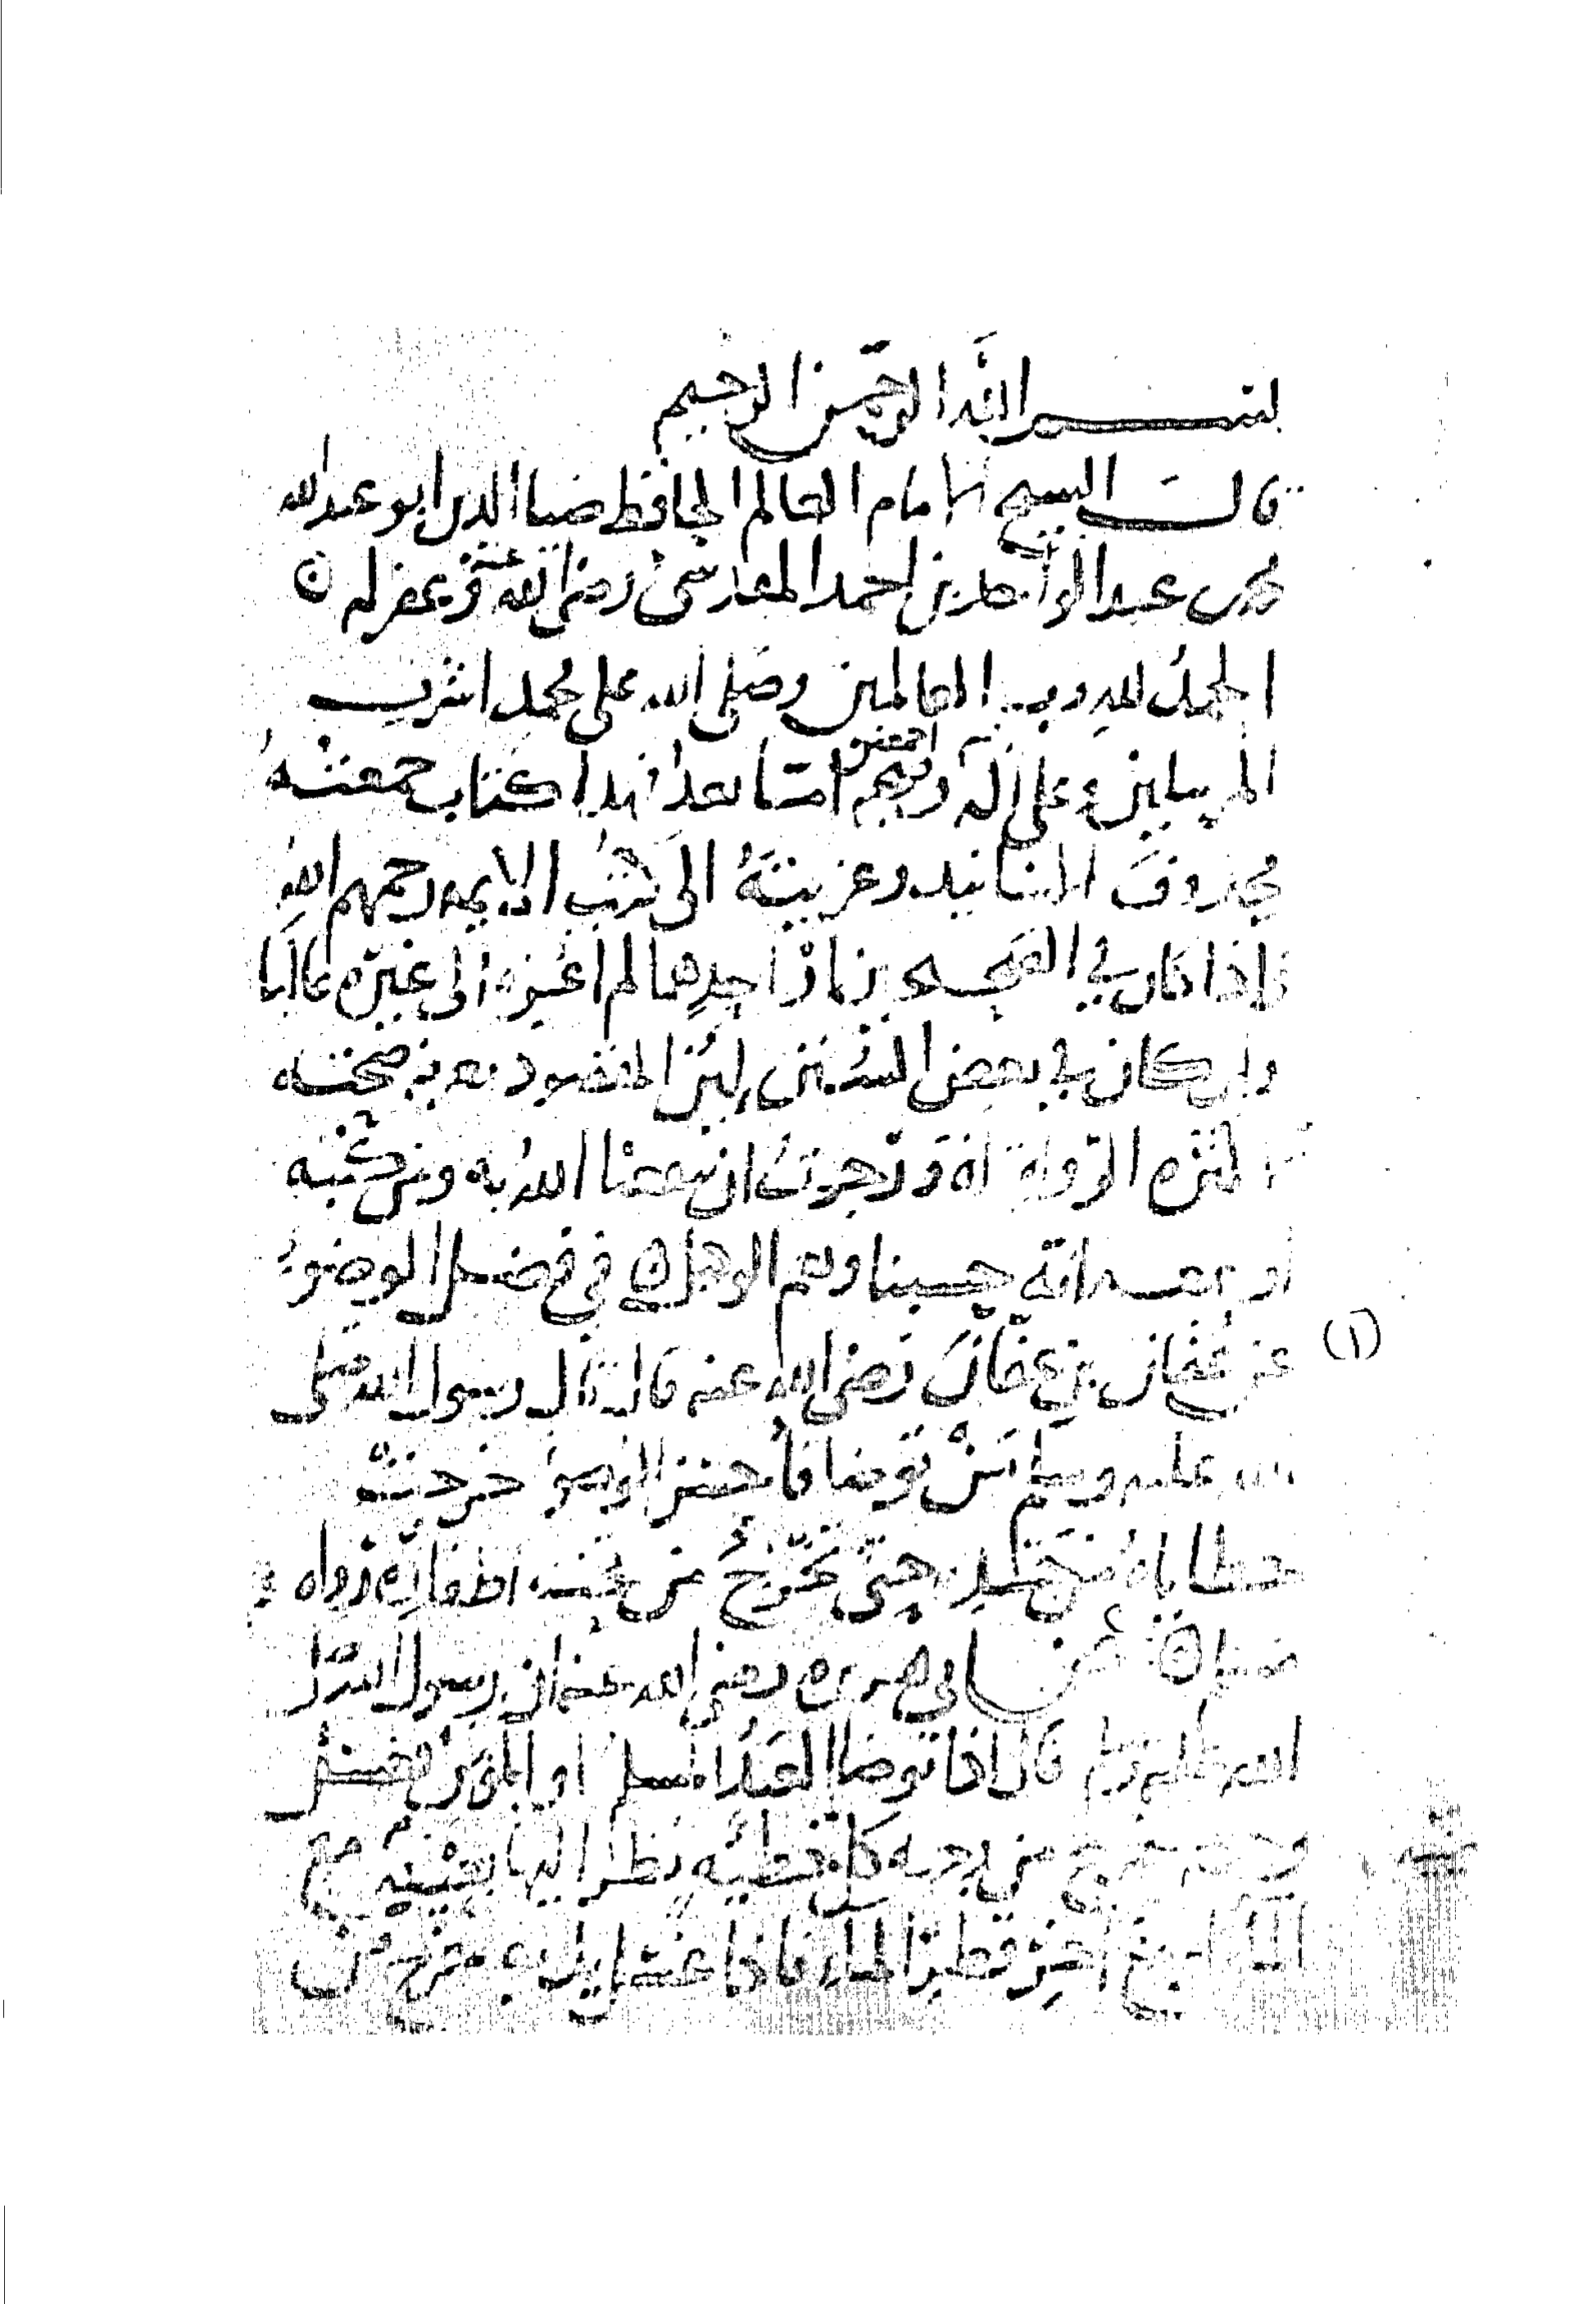 بسم الله الرحمن الرحيم
قال الشيخ الامام العالم الحافظ ضيا الدين ابو عبد الله
محمد بن عبد الواحد بن احمد المقدسي رضي الله عنه وغفر له
الحمد لله رب العالمين وصلى الله على محمد اشرف
المرسلين وعلى آله وصحبهم اجمعين امّا بعد فهذا كتاب جمعته
محذوف الاسانيد وعزيته الى كتب الايمه رحمهم الله
فاذا كان في الصحيحين او احدهما لم اعزه الى غيره غالبا
وان كان في بعض السنن ليس المقصود معرفة صحته
الرواية ورجوت ان ينفعنا الله به ومن كتبه
او انه حسبنا ونعم الوكيل في فضل الوضوء
(١) عن عثمان بن عفان رضي الله عنه قال قال رسول الله صلى
الله عليه وسلم من توضا فاحسن الوضوء خرجت
خطاياه من جسده حتى تخرج من تحت اظفاره رواه
مسلم عن ابي هريره رضي الله عنه ان رسول الله صلى
الله عليه وسلم قال اذا توضا العبد المسلم او المؤمن فغسل
وجهه خرج من وجهه كل خطيئه نظر اليها بعينيه مع
الماء او مع اخر قطر الماء فاذا غسل يديه خرج من